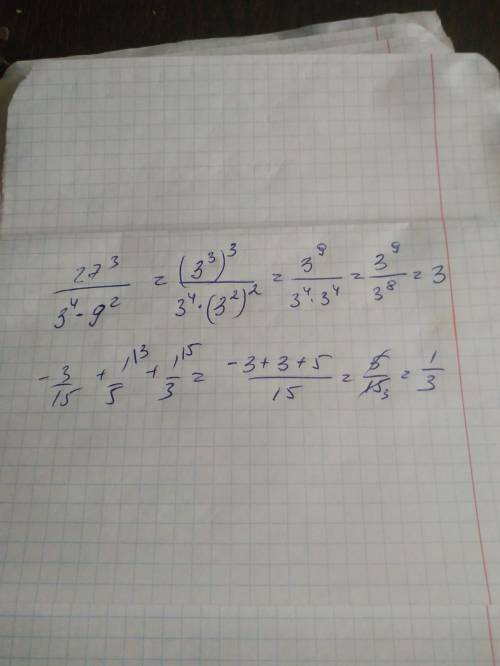 27³/(3⁴ · 9²) = (3³)³/(3⁴ · (3²)²) = 3⁹/(3⁴ · 3⁴) = 3⁹/3⁸ = 3
-3/15 + 1\³/5 + 1\⁵/3 = (-3+3+5)/15 = 5/15₃ = 1/3